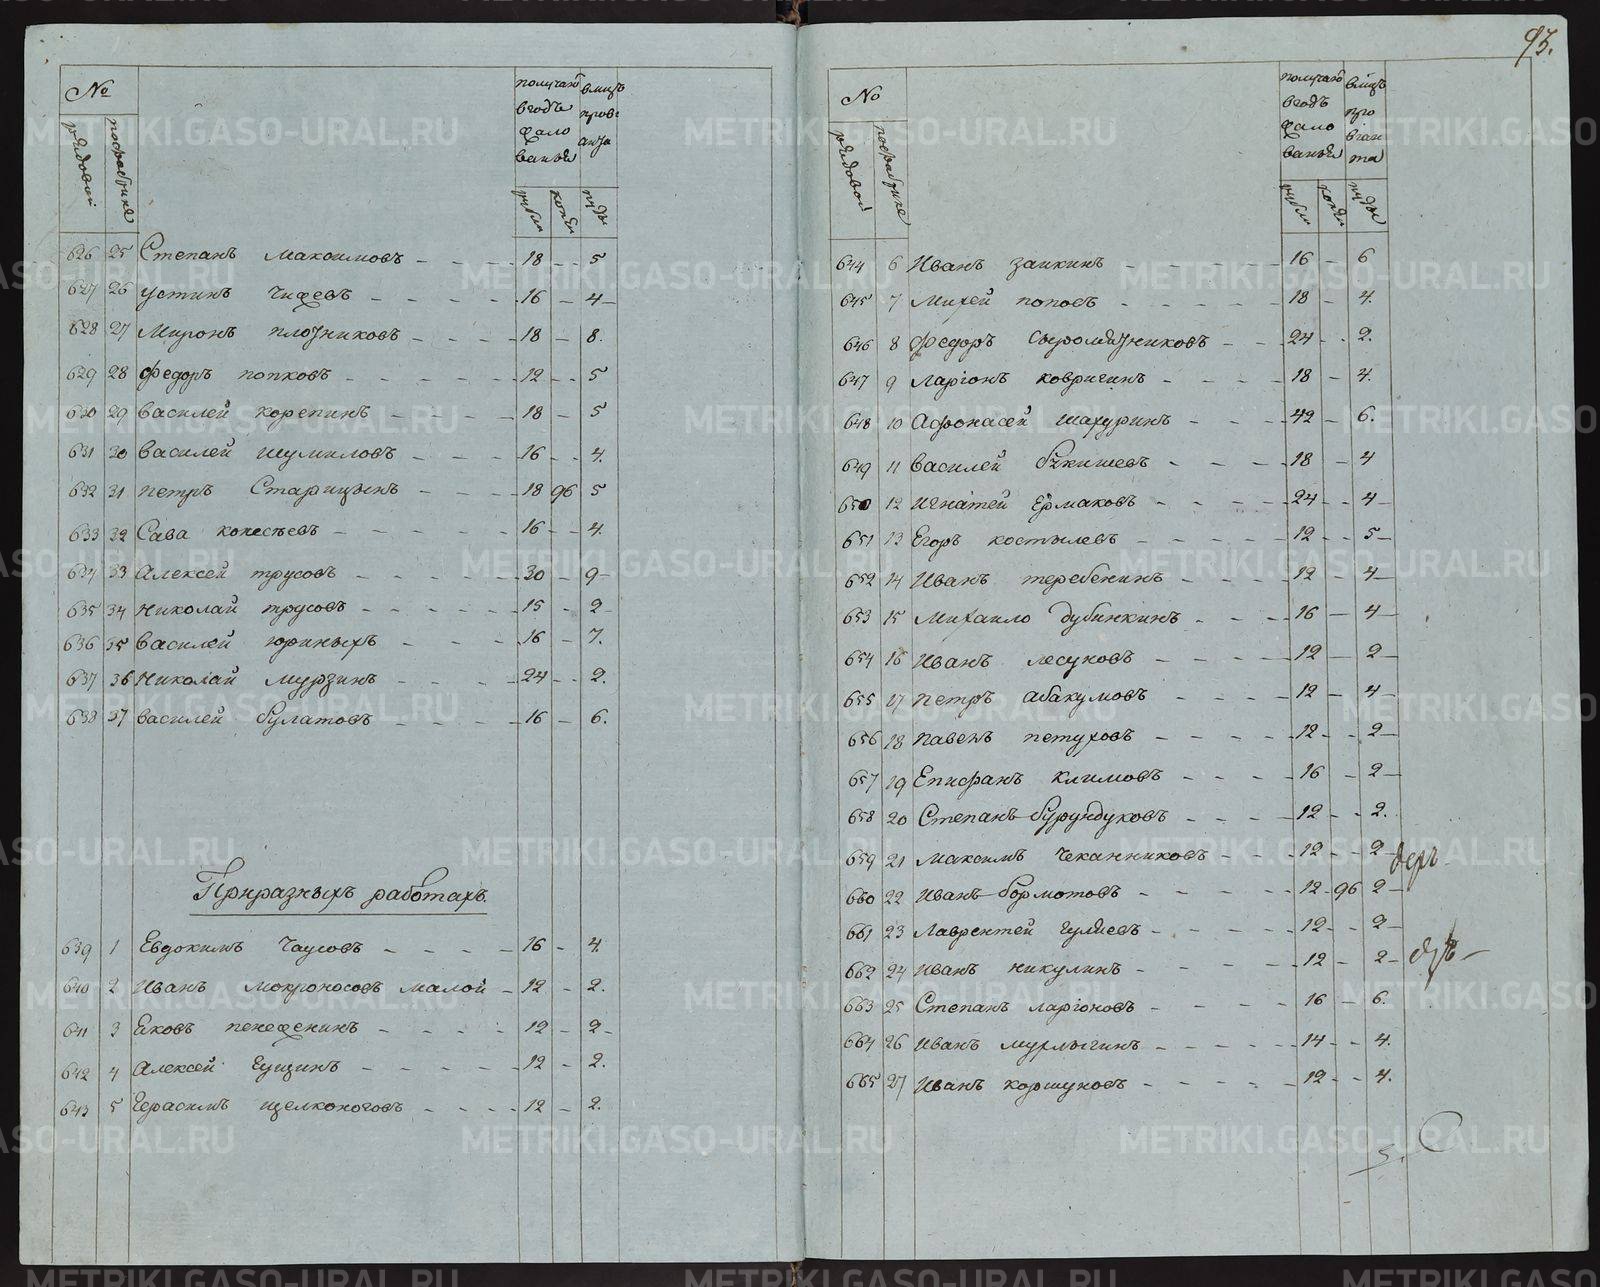 №
рядовой
пофабрике
получаютъ
вгодъ
жало
ванья
вмцъ
прові
анта
рубли
копѣи
пуды
626 25 Степанъ максимовъ 18 5
627 26 Устинъ Чижевъ 16 4
628 27 Миронъ плотниковъ 18 8.
629 28 Федоръ попковъ 12 5
630 29 василей корепинъ 18 5
631 30 василей шумиловъ 16 4.
632 31 петръ Старицынъ 18 96 5
633 32 Сава 16 4.
634 33 Алексей трусовъ 30 9
635 34 Николай трусовъ 15 2
636 35 василей юриныхъ 16 7.
637 36 Николай мурзинъ 24 2.
638 37 василей булатовъ 16 6.
Приразныхъ работахъ.
639 1 Евдокимъ Чаусовъ 16 4.
640 2 Иванъ мокроносовъ малой 12 2.
641 3 Яковъ пенеженинъ 12 2
642 4 Алексей Ещинъ 12 2.
643 5 Герасимъ щелконоговъ 12 2.
93.
№
рядовой
пофабрике
получаютъ
вгодъ
жало
ванья
вмцъ
про
віан
та
рубли
копѣи
пуды
644 6 Иванъ заикинъ 16 6
645 7 Михей поповъ 18 4.
646 8 Федоръ Сыромятниковъ 24 2.
647 9 Ларіонъ ковригинъ 18 4.
648 10 Афонасей шахуринъ 42 6.
649 11 василей 18 4
650 12 Игнатей Ермаковъ 24 4
651 13 Егоръ костылевъ 12 5
652 14 Иванъ теребенинъ 12 4
653 15 Михаило дубинкинъ 16 4
654 16 Иванъ лесуновъ 12 2
655 17 петръ абакумовъ 12 4
656 18 павелъ петуховъ 12 2
657 19 Епифанъ климовъ 16 2
658 20 Степанъ бурундуковъ 12 2.
659 21 максимъ Чеканниковъ 12 2
660 22 Иванъ бормотовъ 12 96 2
661 23 Лаврентей гуляевъ 12 2
662 24 Иванъ никулинъ 12 2
663 25 Степанъ ларіоновъ 16 6.
664 26 Иванъ мурлыгинъ 14 4.
665 27 Иванъ коршуновъ 12 4.
METRIKI.GASO-URAL.RU